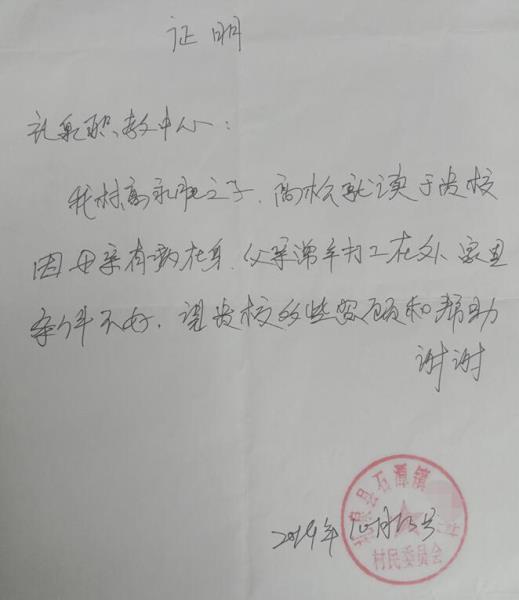 证明
礼泉职教中心：
我村高永肥之子，高松就读于贵校
因母亲有病在身，父亲常年打工在外，家里
条件不好，望贵校多些照顾和帮助
谢谢
2019年10月13号
礼泉县石潭镇
村民委员会